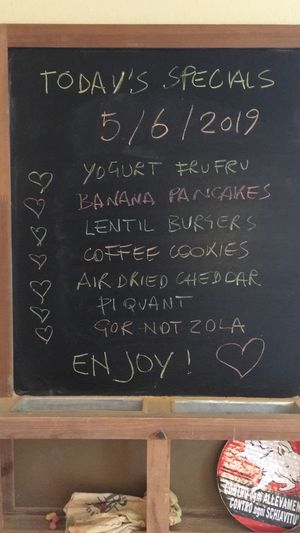 TODAY'S SPECIALS
5/6/2019
YOGURT FRUFRU
BANANA PANCAKES
LENTIL BURGERS
COFFEE COOKIES
AIR DRIED CHEDCAR
PIQUANT
GOR-NOT-ZOLA
ENJOY!
ALLEVAMEN
CONTRO ogni
SCHIAVITU'